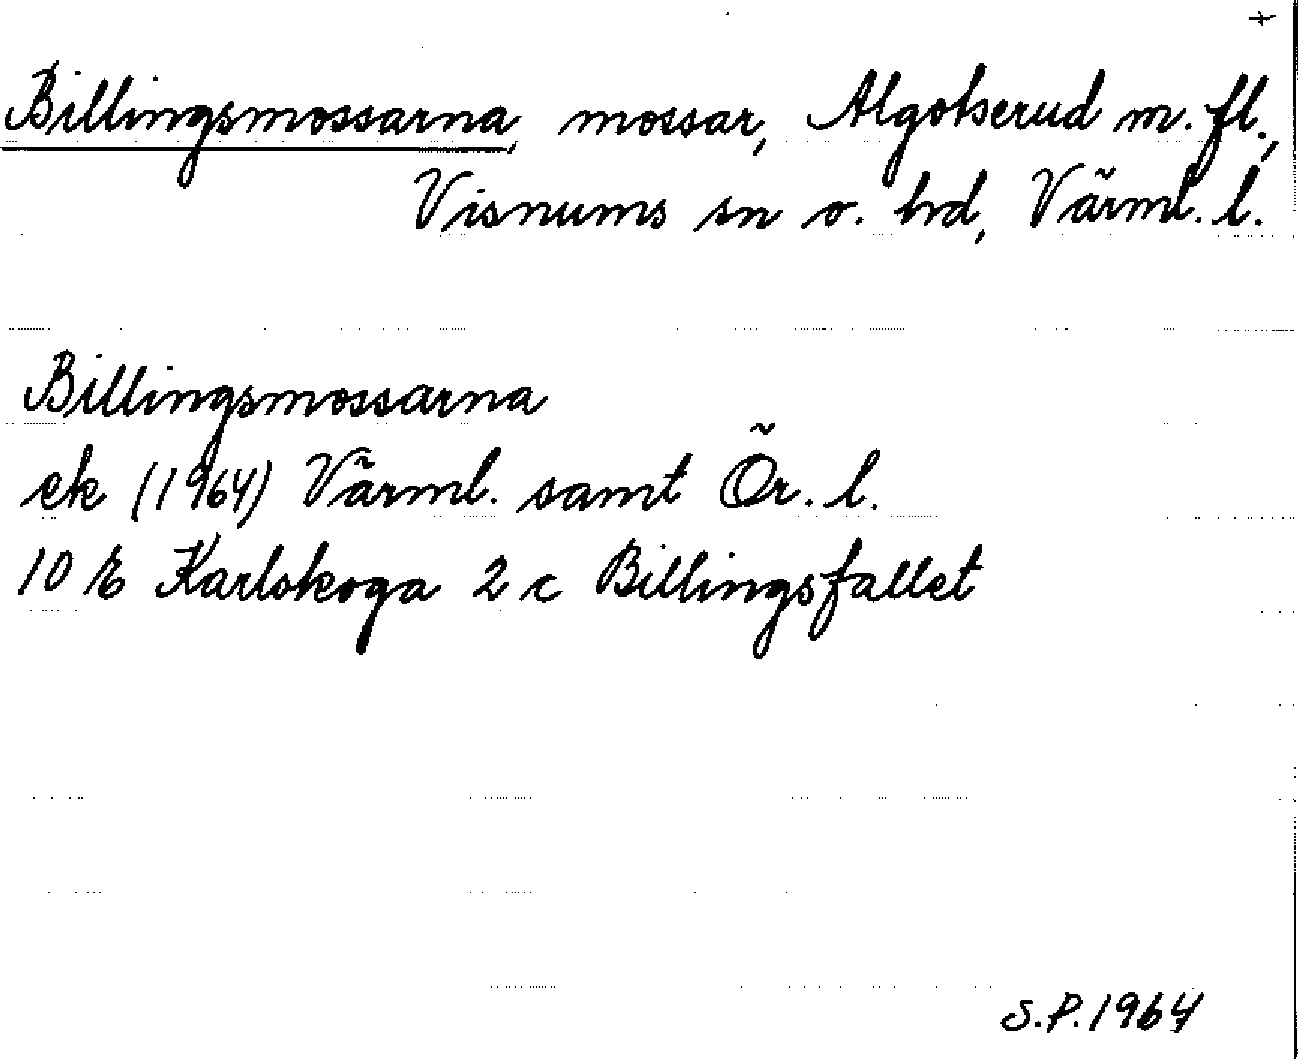 +
Billingsmossarna, mossar, Algotserud m. fl.,
Visnums sn o. hd, Värml. l.
Billingsmossarna
ek (1964) Värml. samt Ör. l.
10 E Karlskoga 2 c Billingsfallet
S.P. 1964